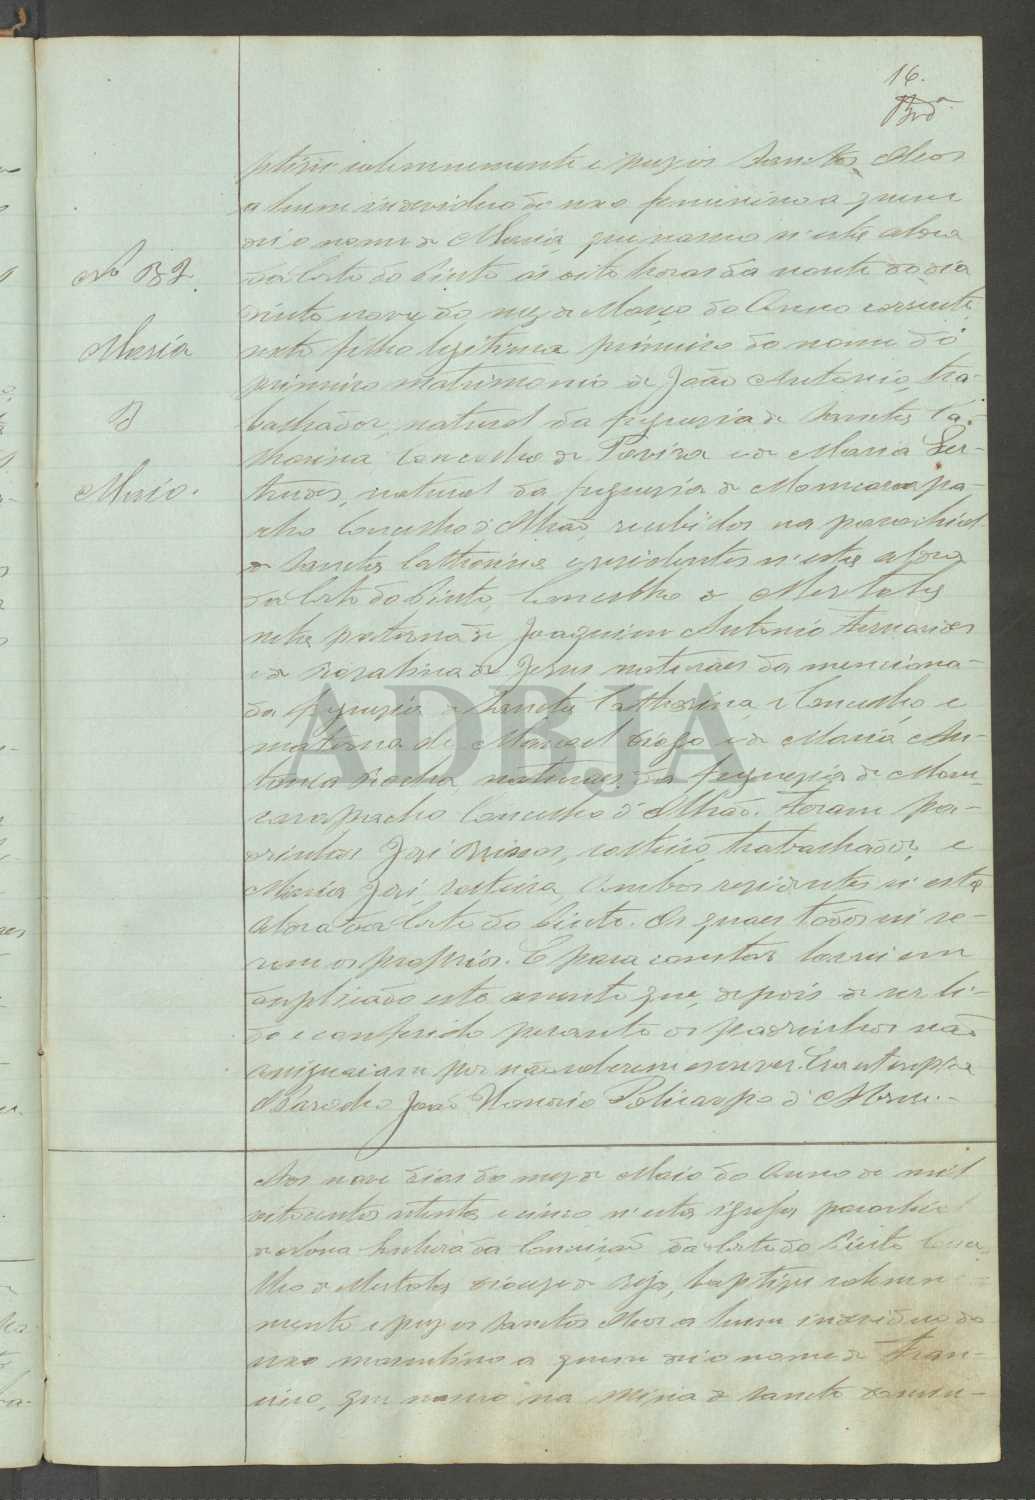 16.
ptizei solemnemente e puz os Sanctos Oleos
a hum individuo do sexo feminino a quem
dei o nome de Maria, que nasceu n'esta aldea
da Corte do Pinto ás oito horas da noute do dia
vinte nove do mez de Março do Anno corrente,
Nº 32.
sexto filho legitimo primeiro do nome do
Maria
primeiro matrimonio de João Antonio, tra-
balhador, natural da freguezia de Sancta Ca-
tharina Concelho de Tavira e de Maria Ger-
trudes, natural da freguezia de Moncarapa-
cho Concelho d'Olhão, recebidos na parochial
de Sancta Catharina e residentes n'esta aldea
da Corte do Pinto, Concelho de Mertola,
neta paterna de Joaquim Antonio Fernandes
e de de Jesus naturaes da menciona-
da freguezia de Sancta Catharina, e Concelho e
materna de Manoel Diogo e de Maria An-
tonia Rocha, naturaes da freguezia de Mon-
carapacho Concelho d'Olhão. Foram pa-
drinhos José, solteiro, trabalhador, e
Maria José, solteira, ambos residentes n'esta
aldea da Corte do Pinto. Os quaes todos sei se-
rem os proprios. E para constar lavrei em
duplicado este assento que, depois de ser li-
do e conferido perante os padrinhos não
assignaram por não saberem escrever. Era ut supra
O Parocho João Honorio Policarpo d'Abreu.
Aos nove dias do mez de Maio do Anno de mil
oitocentos oitenta e cinco n'esta igreja parochial
de Nossa Senhora da Conceição da Corte do Pinto Conce
lho de Mertola Diocese de Beja, baptizei solemne
mente e puz os Sanctos Oleos a hum individuo do
sexo masculino a quem dei o nome de Fran-
cisco, que nasceu na Mina de Sancto Domin-
ADBJA